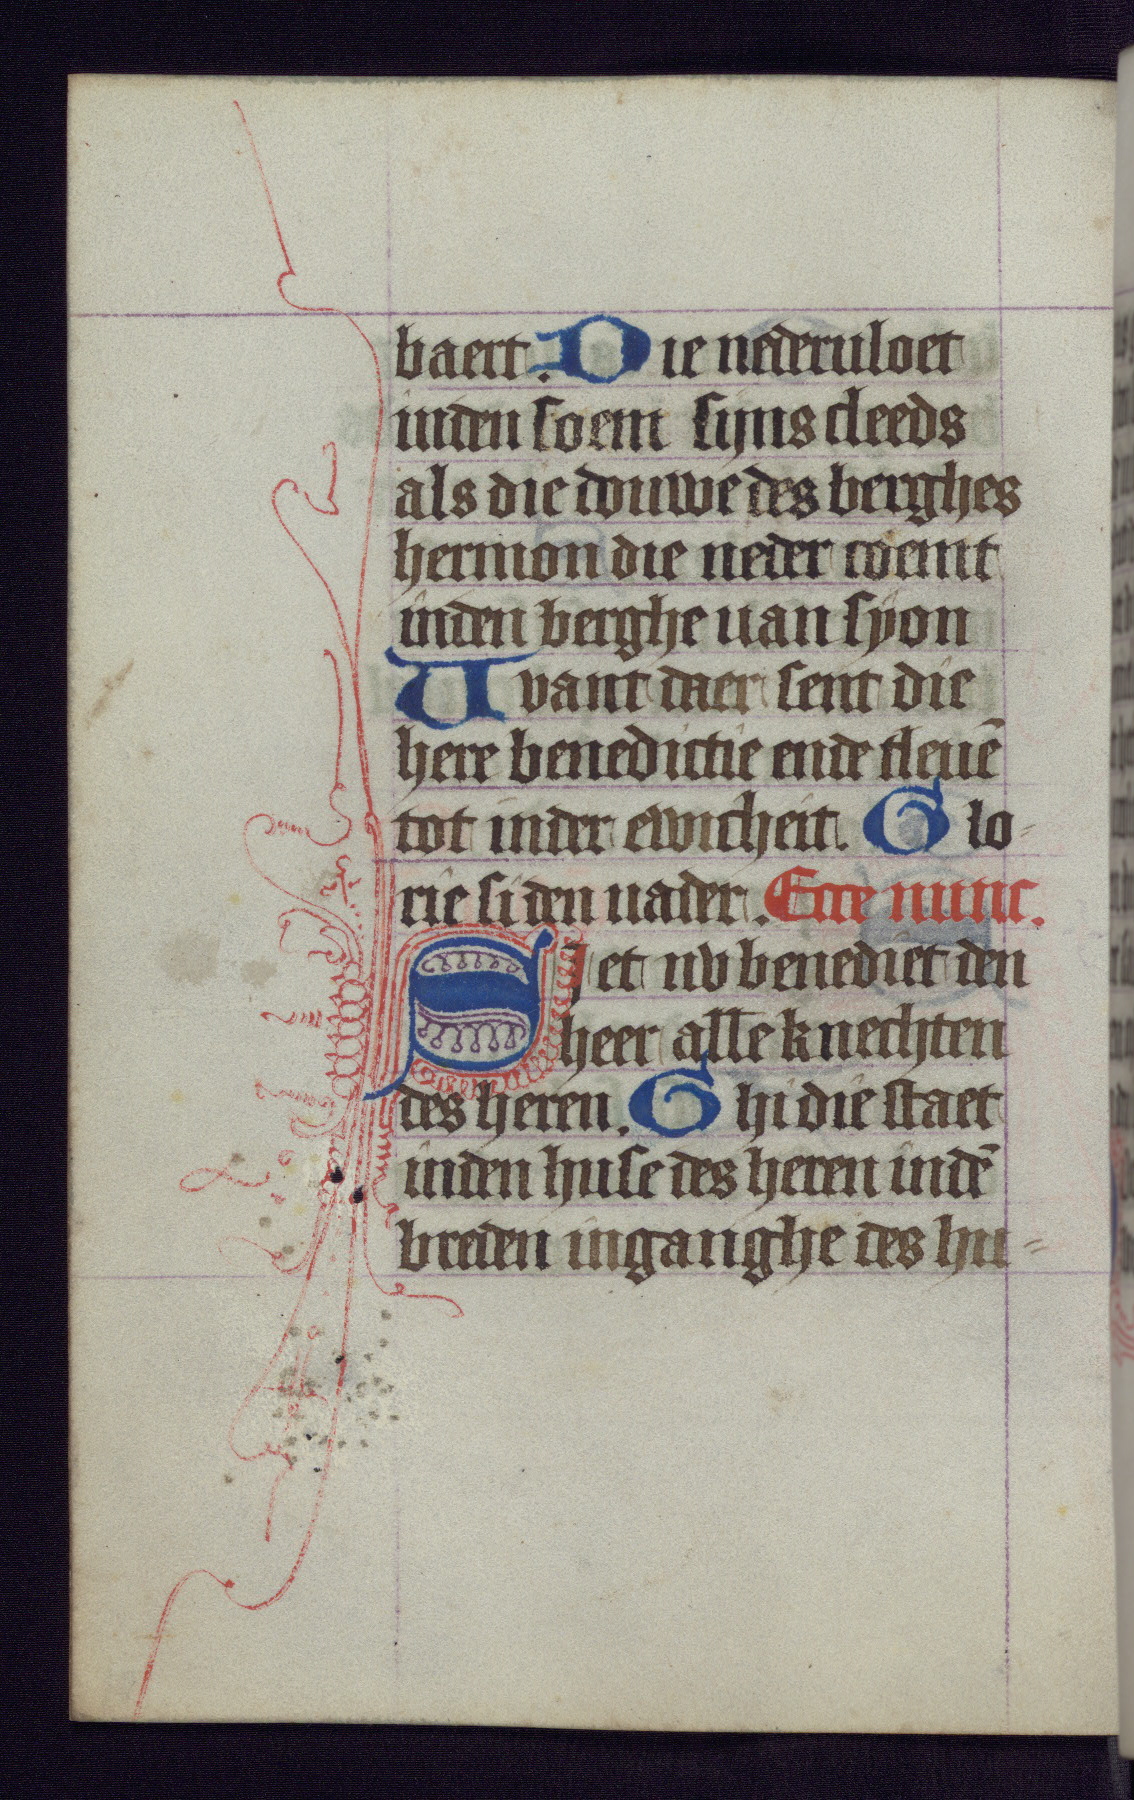 baert. Die nederuloet
inden soem sijns cleeds
als die douwe des berghes
hermon die neder coemt
inden berghe uan syon
Want daer sent die
here benedictie ende tleuē
tot inder ewicheit. Glo-
rie si den uader. Ecce nunc.
Siet nv benediet den
heer alle knechten
des heren. Ghi die staet
inden huse des heren indē
breden inganghe des hu-